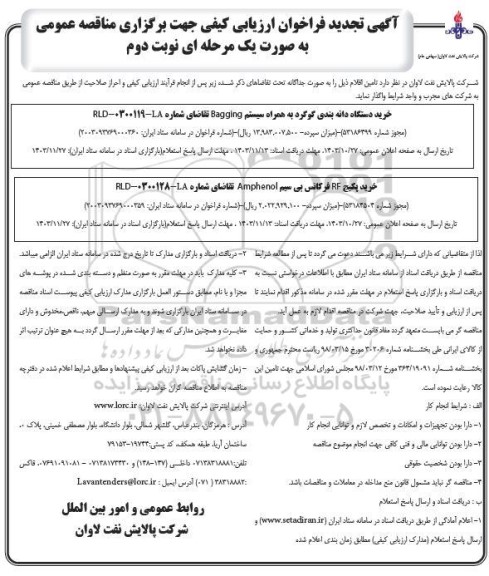 شرکت پالایش نفت لاوان (سهامی عام)
آگهی تجدید فراخوان ارزیابی کیفی جهت برگزاری مناقصه عمومی
به صورت یک مرحله ای نوبت دوم
شرکت پالایش نفت لاوان در نظر دارد تامین اقلام ذیل را به صورت جداگانه تحت تقاضاهای ذکر شده زیر پس از انجام فرآیند ارزیابی کیفی و احراز صلاحیت از طریق مناقصه عمومی
به شرکت های مجرب و واجد شرایط واگذار نماید.
خرید دستگاه دانه بندی گوگرد به همراه سیستم Bagging تقاضای شماره RLD-0300119-LA
(مجوز شماره 53186399)-(میزان سپرده- 13,983,007,500 ریال)-(شماره فراخوان در سامانه ستاد ایران: 2003093769000360)
تاریخ ارسال به صفحه اعلان عمومی: 1403/10/27، مهلت دریافت اسناد: 1403/11/13 ، مهلت ارسال پاسخ استعلام(بارگزاری اسناد در سامانه ستاد ایران): 1403/11/27
خرید پکیج RF فرکانس بی سیم Amphenol تقاضای شماره RLD-0300128-LA
(مجوز شماره 53184503)-(میزان سپرده- 2,022,929,100 ریال)-(شماره فراخوان در سامانه ستاد ایران: 2003093769000359)
تاریخ ارسال به صفحه اعلان عمومی: 1403/10/27، مهلت دریافت اسناد: 1403/11/13 ، مهلت ارسال پاسخ استعلام(بارگزاری اسناد در سامانه ستاد ایران): 1403/11/27
لذا از متقاضیانی که دارای شرایط زیر می باشند دعوت می گردد تا پس از مطالعه شرایط
مناقصه از طریق دریافت اسناد از سامانه ستاد ایران مطابق با اطلاعات در توانستی نسبت به
دریافت اسناد و بارگزاری پاسخ استعلام در مهلت مقرر شده در سامانه مذکور اقدام نمایند تا
پس از ارزیابی و تأیید صلاحیت، جهت شرکت در مناقصه اقدام لازم به عمل آید.
مناقصه گر می بایست متعهد گردد مفاد قانون حداکثری تولید و خدماتی کشور و حمایت
از کالای ایرانی طی بخشنامه شماره 30206 مورخ 98/03/15 ریاست محترم جمهوری و
بخشنامه شماره 363/19091 مورخ 98/03/12 مجلس شورای اسلامی جهت تامین این
کالا رعایت نموده است.
الف : شرایط انجام کار
1- دارا بودن تجهیزات و امکانات و تخصص لازم و توانایی انجام کار
2- دارا بودن توانایی مالی و فنی کافی جهت انجام موضوع مناقصه
3- دارا بودن شخصیت حقوقی
4- مناقصه گر نباید مشمول قانون منع مداخله در معاملات و مناقصات باشد.
ب : دریافت اسناد و ارسال پاسخ استعلام
1- اعلام آمادگی از طریق دریافت اسناد در سامانه ستاد ایران (www.setadiran.ir) و
ارسال پاسخ استعلام (مدارک ارزیابی کیفی) مطابق زمان بندی اعلام شده
2- دریافت اسناد و بارگزاری مدارک تا تاریخ درج شده در سامانه ستاد ایران الزامی میباشد.
3- کلیه مدارک باید در مهلت مقرر به صورت منظم و دسته بندی شده در پوشه های
مجزا و با نام، مطابق دستور العمل بارگزاری مدارک ارزیابی کیفی پیوست اسناد مناقصه
در سامانه ستاد ایران بارگزاری شوند و به مدارک ارسالی مبهم، ناقص،مخدوش و دارای
مغایرت و همچنین مدارکی که بعد از مهلت مقرر ارسال گردد به هیچ عنوان ترتیب اثر
داده نخواهد شد.
- زمان گشایش پاکات بعد از ارزیابی کیفی پیشنهادها و مطابق اعلام شده در دفترچه
مناقصه به اطلاع مناقصه گران خواهد رسید.
آدرس اینترنتی شرکت پالایش نفت لاوان: www.lorc.ir
آدرس : هرمزگان، بندرعباس، گلشهر شمالی، بلوار دانشگاه، بلوار مصطفی خمینی، پلاک 0،
ساختمان آریا، طبقه همکف، کد پستی: 79153-19734
تلفن:07138318881 داخلی (137-138) و 07138173320 - 07691091081، فاکس
38318882 (071) آدرس ایمیل : Lavantenders@lorc.ir
روابط عمومی و امور بین الملل
شرکت پالایش نفت لاوان
پایگاه اطلاع رسانی
ParsNamadData
021-88349670-5